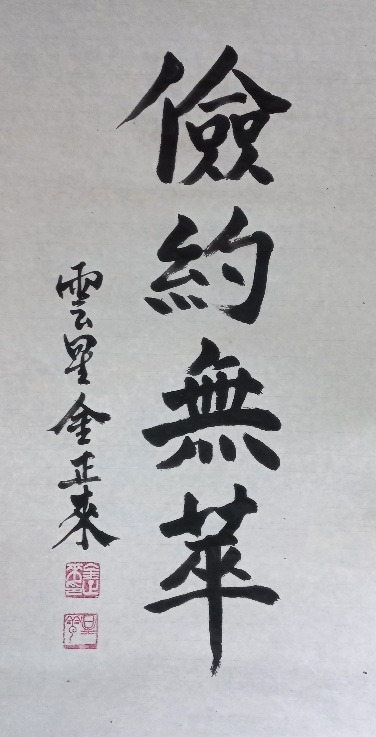 儉約無華
雲星金正來